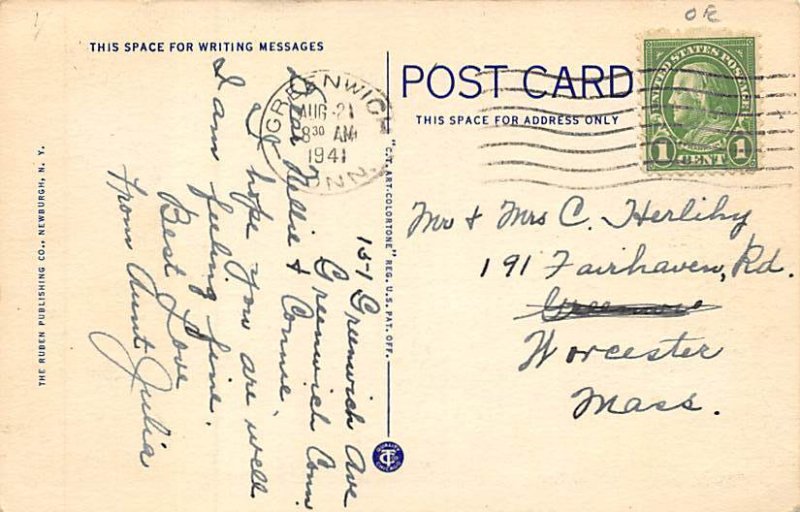 THIS SPACE FOR WRITING MESSAGES
POST CARD
THIS SPACE FOR ADDRESS ONLY
GREENWICH
AUG 21
8 30 AM
1941
CONN.
UNITED STATES POSTAGE
1 CENT 1
15-1 Greenwich Ave
Greenwich Conn
Dear Nellie & Connie,
I hope you are well
I am feeling fine.
Best Love
From Aunt Julia
Mr & Mrs C. Herlihy
191 Fairhaven, Rd.
Worcester
Mass.
"C.T. ART-COLORTONE" REG. U.S. PAT. OFF.
THE RUBEN PUBLISHING CO., NEWBURGH, N. Y.